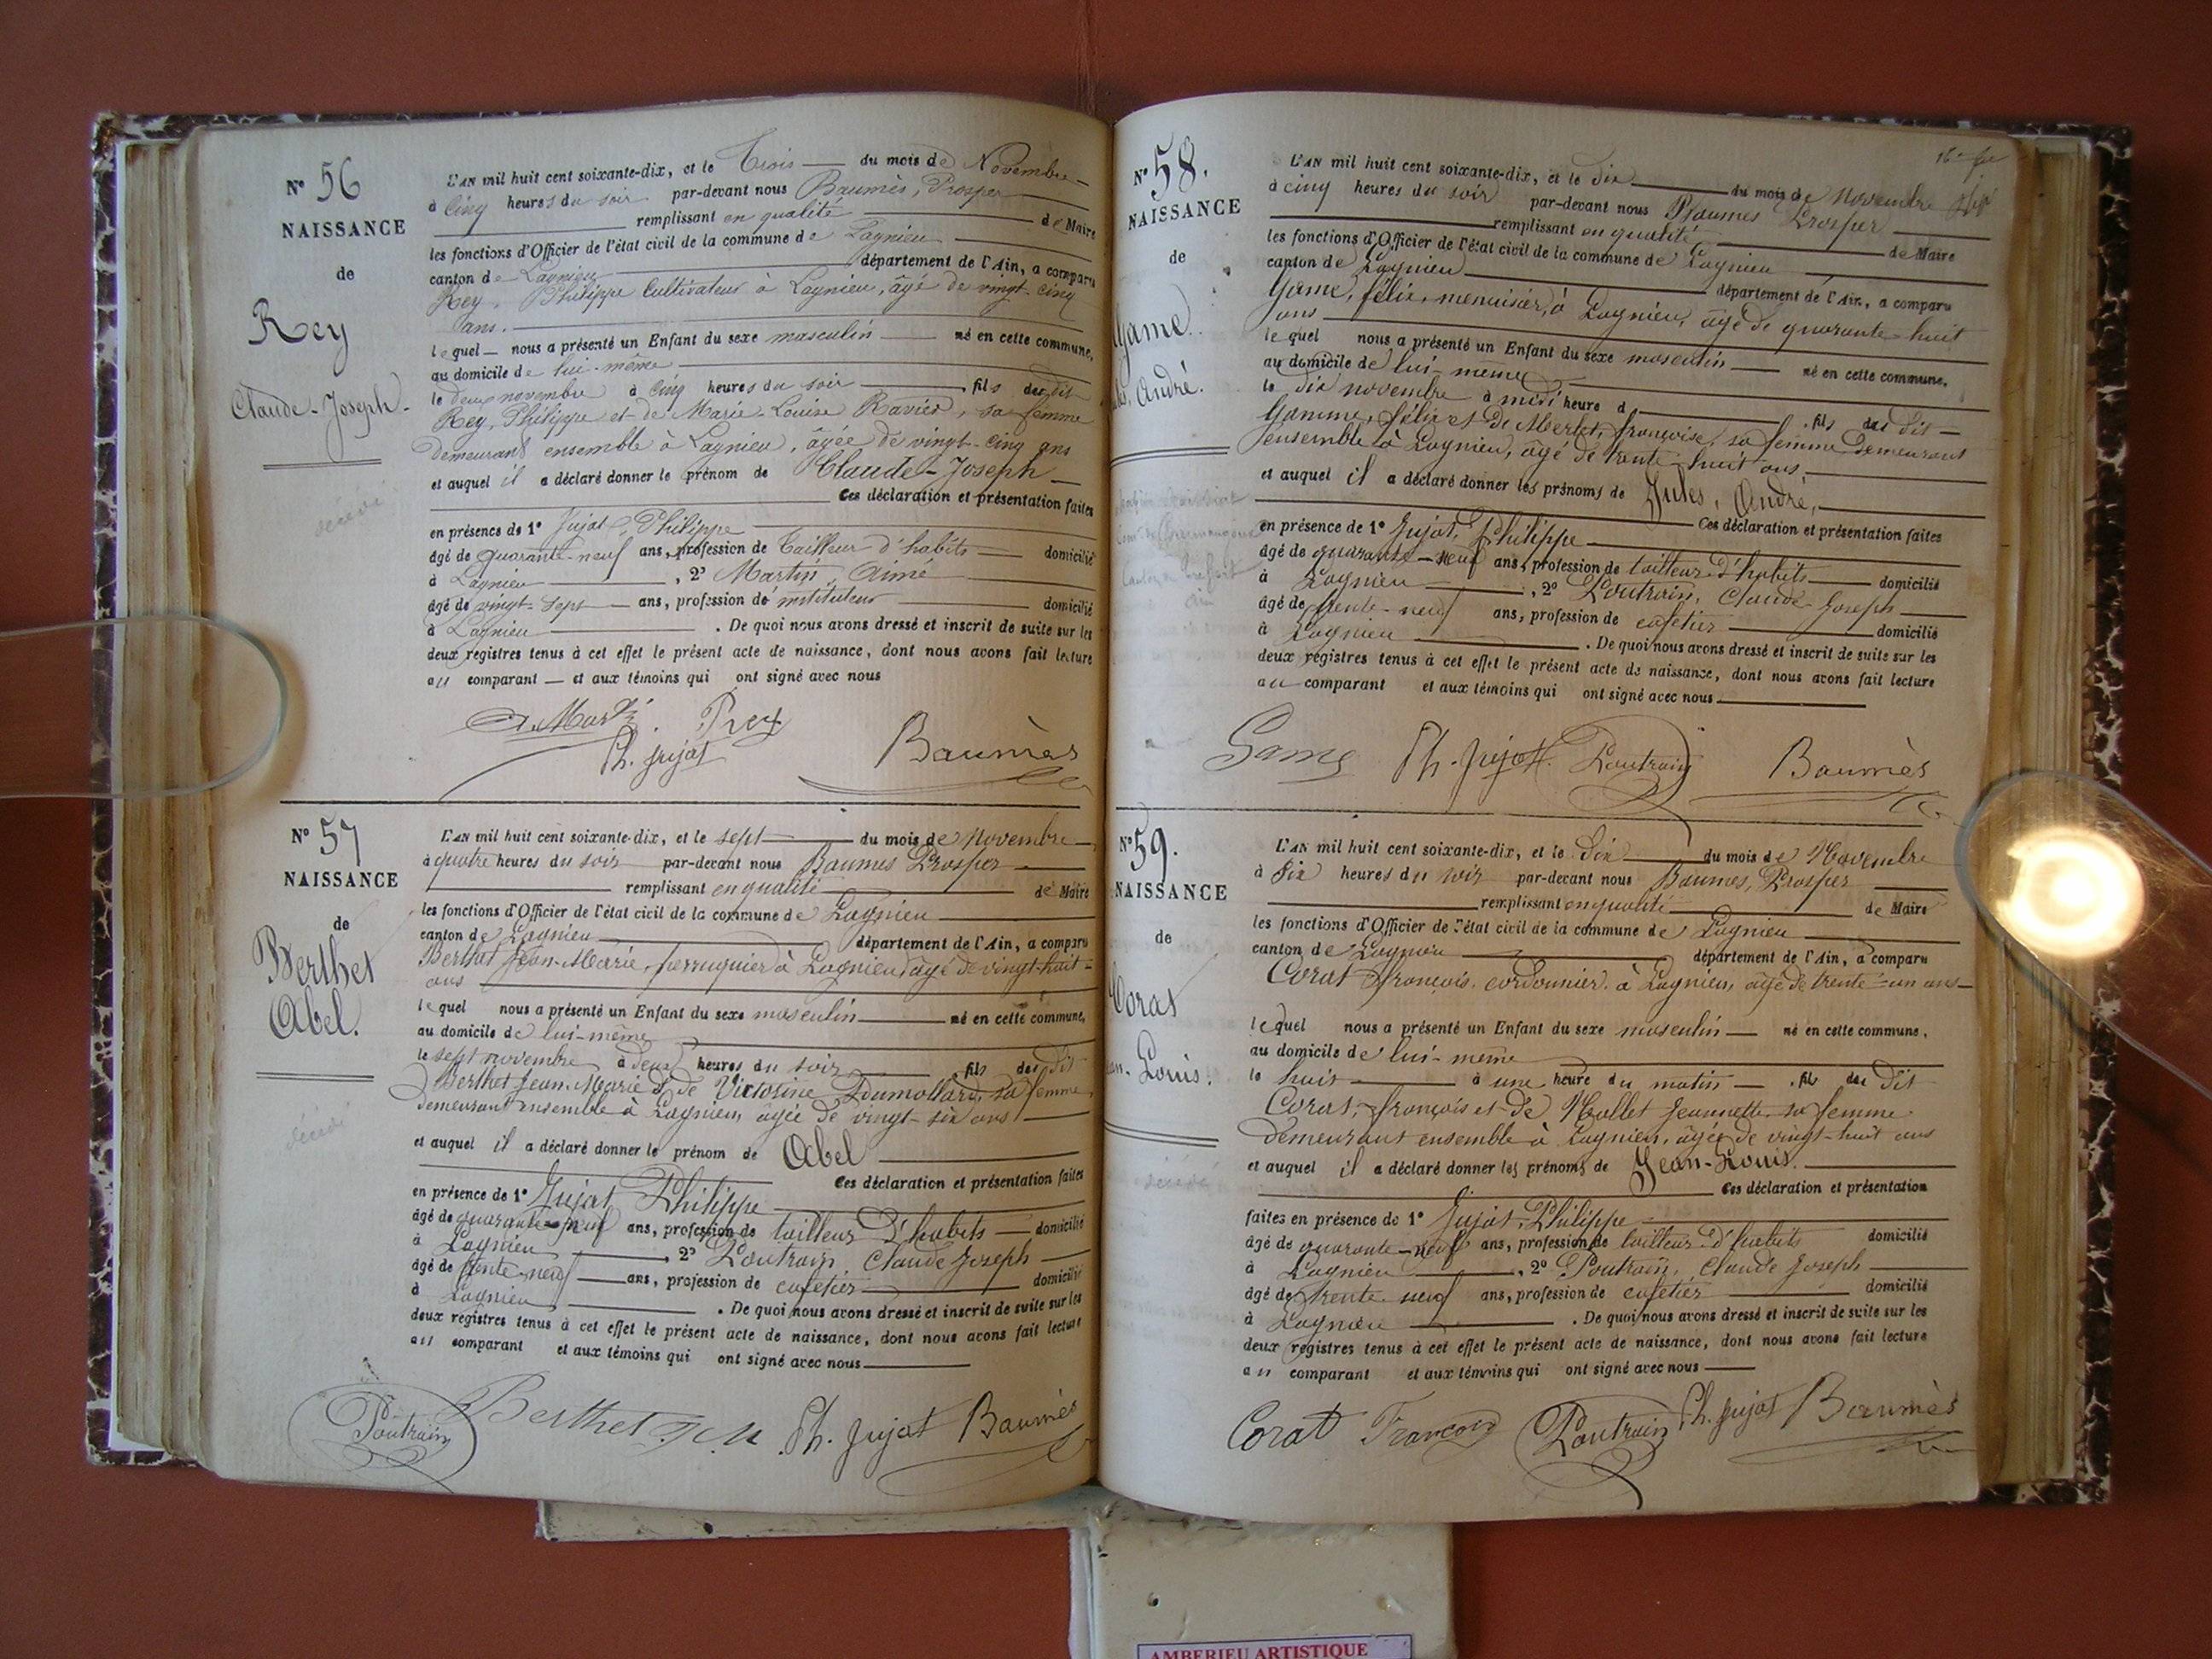 N° 56
NAISSANCE
de
Rey
Claude-Joseph
décédé
L'AN mil huit cent soixante-dix, et le Trois du mois de Novembre
à Cinq heures du soir par-devant nous Baumès, Prosper
remplissant en qualité de Maire
les fonctions d'Officier de l'état civil de la commune de Lagnieu
canton de Lagnieu département de l'Ain, a comparu
Rey, Philippe Cultivateur à Lagnieu, âgé de vingt-cinq
ans.
lequel nous a présenté un Enfant du sexe masculin né en cette commune,
au domicile de lui-même
le deux novembre à Cinq heures du soir fils du dit
Rey, Philippe et de Marie-Louise Ravier, sa femme
demeurant ensemble à Lagnieu, âgée de vingt-cinq ans
et auquel il a déclaré donner le prénom de Claude-Joseph
Ces déclaration et présentation faites
en présence de 1° Jujat, Philippe
âgé de quarante-neuf ans, profession de Tailleur d'habits domicilié
à Lagnieu, 2° Martin, Aimé
âgé de vingt-sept ans, profession d'instituteur domicilié
à Lagnieu. De quoi nous avons dressé et inscrit de suite sur les
deux registres tenus à cet effet le présent acte de naissance, dont nous avons fait lecture
au comparant et aux témoins qui ont signé avec nous
A. Martin Rey
Ph. Jujat Baumès
N° 57
NAISSANCE
de
Berthet
Abel.
décédé
L'AN mil huit cent soixante-dix, et le sept du mois de Novembre
à quatre heures du soir par-devant nous Baumes Prosper
remplissant en qualité de Maire
les fonctions d'Officier de l'état civil de la commune de Lagnieu
canton de Lagnieu département de l'Ain, a comparu
Berthet Jean-Marie, perruquier à Lagnieu âgé de vingt-huit
ans
lequel nous a présenté un Enfant du sexe masculin né en cette commune,
au domicile de lui-même
le sept novembre à deux heures du soir fils du dit
Berthet Jean-Marie & de Victorine Dumollard, sa femme
demeurant ensemble à Lagnieu, agée de vingt-six ans
et auquel il a déclaré donner le prénom de Abel
Ces déclaration et présentation faites
en présence de 1° Jujat Philippe
âgé de quarante-neuf ans, profession de tailleur d'habits domicilié
à Lagnieu 2° Poutrain, Claude Joseph
âgé de trente-neuf ans, profession de cafetier domicilié
à Lagnieu. De quoi nous avons dressé et inscrit de suite sur les
deux registres tenus à cet effet le présent acte de naissance, dont nous avons fait lecture
au comparant et aux témoins qui ont signé avec nous
Poutrain Berthet J.M. Ph. Jujat Baumès
N° 58.
NAISSANCE
de
Game
André.
L'AN mil huit cent soixante-dix, et le dix du mois de Novembre
à cinq heures du soir par-devant nous Baumes Prosper
remplissant en qualité de Maire
les fonctions d'Officier de l'état civil de la commune de Lagnieu
canton de Lagnieu département de l'Ain, a comparu
Game, félix, menuisier, à Lagnieu, âgé de quarante-huit
ans
lequel nous a présenté un Enfant du sexe masculin né en cette commune,
au domicile de lui-meme
le dix novembre à midi heure d fils du dit
Gamme, félix et de Merlet, françoise, sa femme demeurant
ensemble à Lagnieu, âgé de trente-huit ans
et auquel il a déclaré donner les prénoms de Jules, André,
Ces déclaration et présentation faites
en présence de 1° Jujat, Philippe
âgé de quarante-neuf ans, profession de tailleur d'habits domicilié
à Lagnieu, 2° Poutrain, Claude Joseph
âgé de trente-neuf ans, profession de cafetier domicilié
à Lagnieu. De quoi nous avons dressé et inscrit de suite sur les
deux registres tenus à cet effet le présent acte de naissance, dont nous avons fait lecture
au comparant et aux témoins qui ont signé avec nous
Game Ph. Jujat Poutrain Baumès
N° 59.
NAISSANCE
de
Corat
Louis.
décédé
L'AN mil huit cent soixante-dix, et le Dix du mois de Novembre
à Six heures du soir par-devant nous Baumes, Prosper
remplissant en qualité de Maire
les fonctions d'Officier de l'état civil de la commune de Lagnieu
canton de Lagnieu département de l'Ain, a comparu
Corat françois, cordonnier, à Lagnieu, âgé de trente-un ans
lequel nous a présenté un Enfant du sexe masculin né en cette commune,
au domicile de lui-même
le huit à une heure du matin fils du dit
Corat, françois et de Mollet Jeannette sa femme
demeurant ensemble à Lagnieu, âgée de vingt-huit ans
et auquel il a déclaré donner les prénoms de Jean-Louis.
Ces déclaration et présentation
faites en présence de 1° Jujat, Philippe
âgé de quarante-neuf ans, profession de tailleur d'habits domicilié
à Lagnieu, 2° Poutrain, Claude Joseph
âgé de trente neuf ans, profession de cafetier domicilié
à Lagnieu. De quoi nous avons dressé et inscrit de suite sur les
deux registres tenus à cet effet le présent acte de naissance, dont nous avons fait lecture
au comparant et aux témoins qui ont signé avec nous
Corat François Poutrain Ph. Jujat Baumès
AMBERIEU ARTISTIQUE